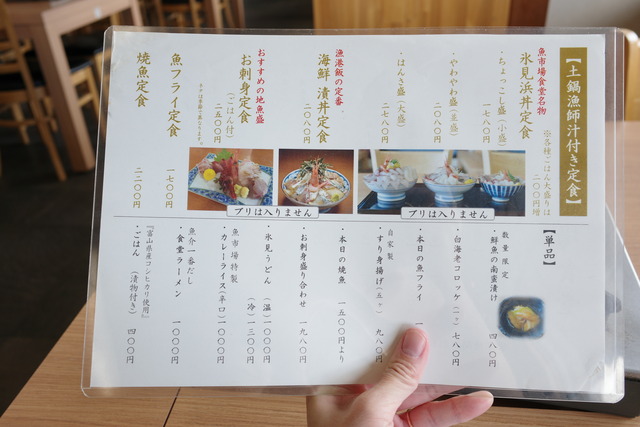 【土鍋漁師汁付き定食】
※各種ごはん大盛りは二〇〇円増
魚市場食堂名物
氷見浜丼定食
・ちょっこし盛(小盛) 一七八〇円
・やわやわ盛(並盛) 二〇八〇円
・はんさ盛(大盛) 二七八〇円
漁港飯の定番
海鮮 漬丼定食 二〇八〇円
おすすめの地魚盛
お刺身定食
(ごはん付) 二五〇〇円
魚フライ定食 一七〇〇円
焼魚定食 二二〇〇円
ブリは入りません
ブリは入りません
【単品】
数量限定
・鮮魚の南蛮漬け 四八〇円
・白海老コロッケ(一ヶ) 七八〇円
・本日の魚フライ 一
自家製
・すり身揚げ(五ヶ) 九八〇円
・本日の焼魚 一五〇〇円より
・お刺身盛り合わせ 一九八〇円
・氷見うどん (温)一〇〇〇円
(冷)一三〇〇円
魚市場特製
・カレーライス(辛口)一〇〇〇円
魚介一番だし
・食堂ラーメン 一〇〇〇円
『富山県産コシヒカリ使用』
・ごはん (漬物付き) 四〇〇円